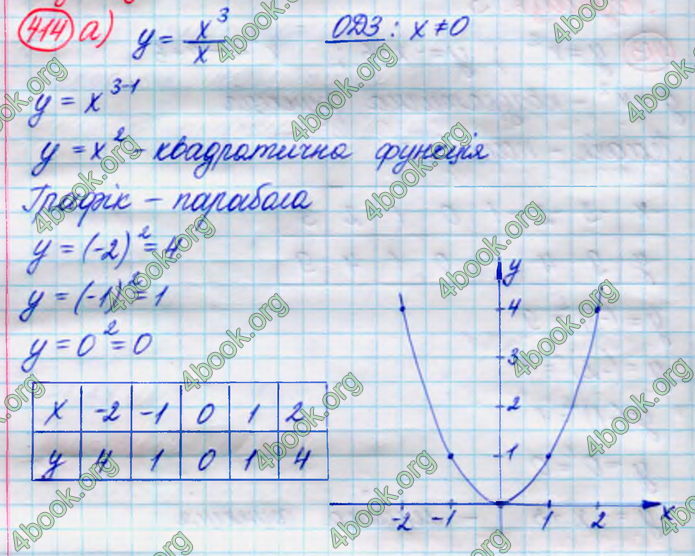 414 а) y = x³/x   ОДЗ: x ≠ 0
y = x³⁻¹
y = x² - квадратична функція
Графік - парабола
y = (-2)² = 4
y = (-1)² = 1
y = 0² = 0
x -2 -1 0 1 2
y 4 1 0 1 4
y
4
3
2
1
-2 -1 1 2 x
4book.org